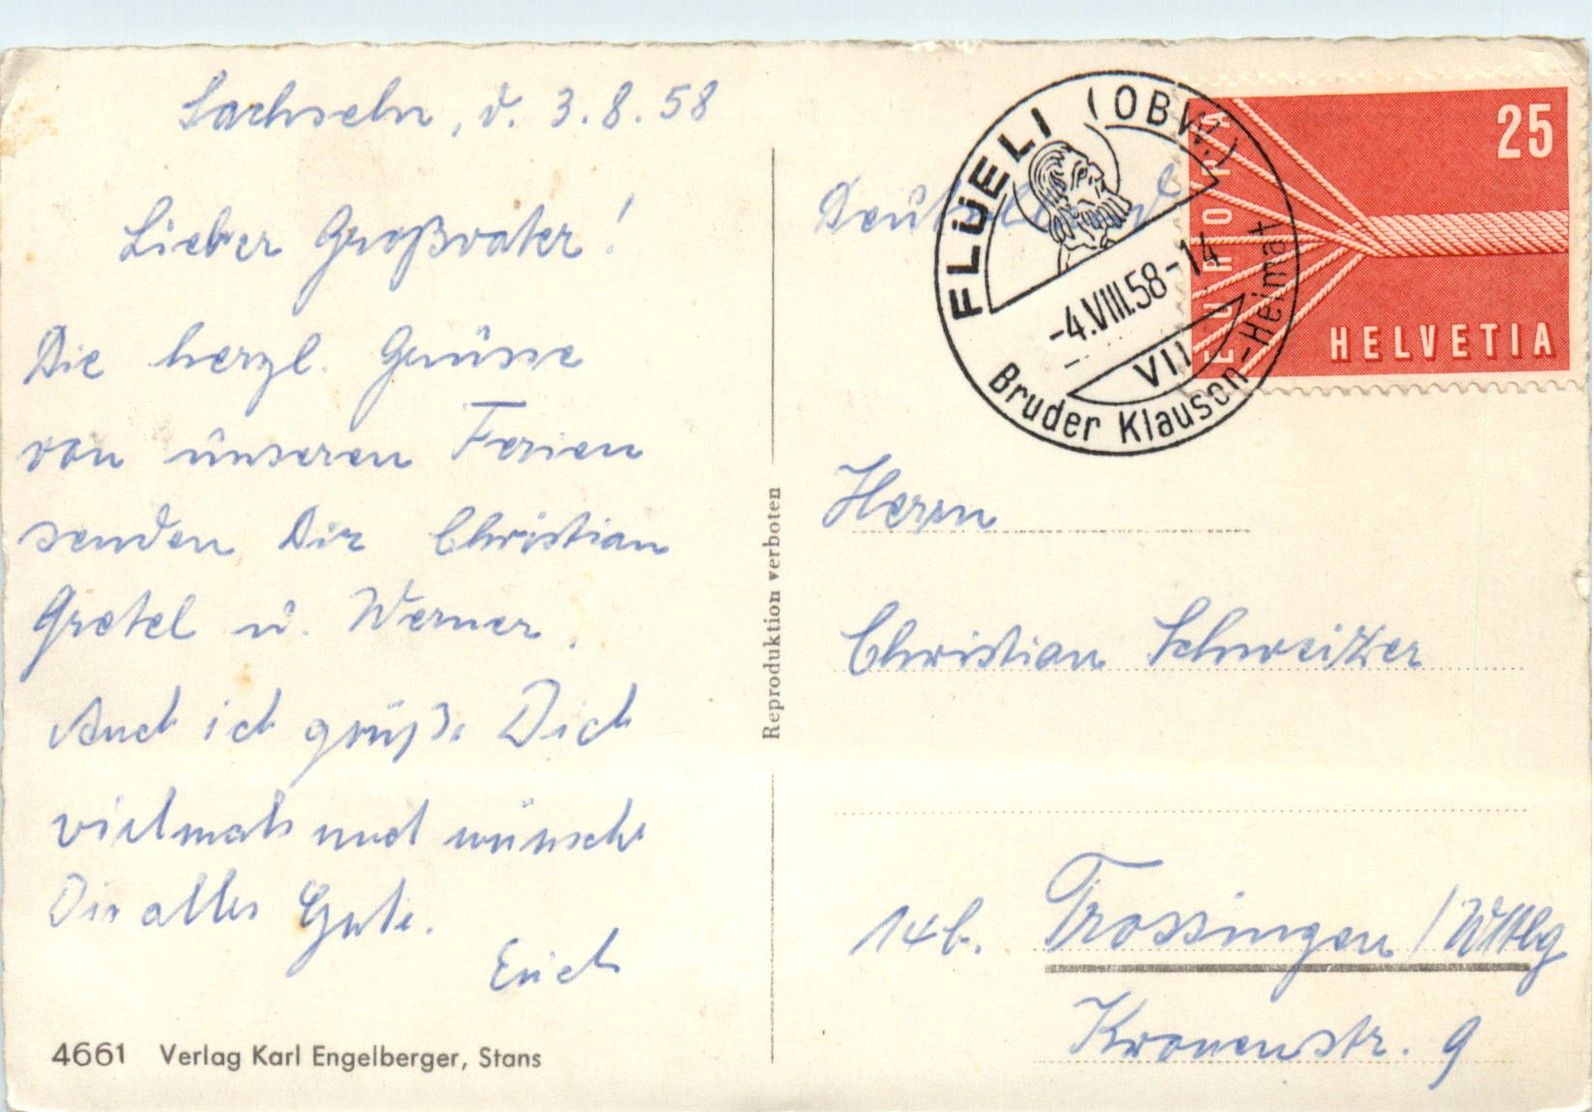 Sachseln, d. 3.8.58
Lieber Großvater!
Die herzl. Grüsse
von unseren Ferien
senden Dir Christian
Gretel u. Werner.
Auch ich grüße Dich
vielmals und wünsche
Dir alles Gute.
Erich
4661 Verlag Karl Engelberger, Stans
Reproduktion verboten
Deutschland
FLÜELI (OBW.)
-4.VIII.58-14
VII
Bruder Klausen-Heimat
25
EUROPA
HELVETIA
Herrn
Christian Schweizer
14b. Trossingen /Wttbg
Kronenstr. 9